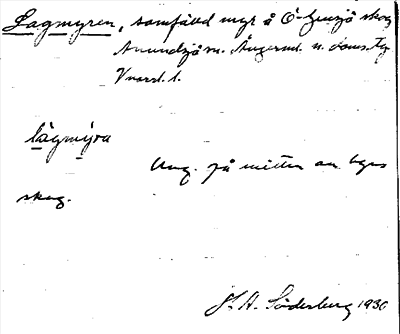 Lagmyren, samfälld myr å Ö-Gensjö skog
Anundsjö sn. Ångerml. n. doms.
V norrl. l.
lågmýra
Ung. på mitten av byns
skog.
J. A. Söderberg 1930